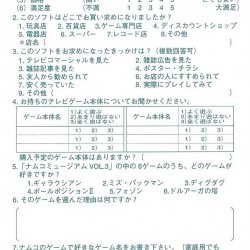 (6) 満足度 (不満 1 2 3 4 5 大満足)
2.このソフトはどこでお買い求めになりましたか?
1.玩具店 2.百貨店 3.ゲーム専門店 4.ディスカウントショップ
5.電器店 6.スーパー 7.レコード店 8.その他
*店名(
3.このソフトをお求めになったきっかけは?(複数回答可)
1.テレビコマーシャルを見た 2.雑誌広告を見た
3.雑誌記事を見た 4.ポスター・チラシ
5.友人から勧められて 6.お店の人にすすめられて
7.安く売っていた 8.実際に遊んでみて
9.その他
4.お持ちのテレビゲーム本体についてお聞かせください。
ゲーム本体名 1)よく遊ぶ 2)あまり遊ばない 3)全く遊ばない ゲーム本体名 1)よく遊ぶ 2)あまり遊ばない 3)全く遊ばない
1) 2) 3) 1) 2) 3)
1) 2) 3) 1) 2) 3)
1) 2) 3) 1) 2) 3)
購入予定のゲーム本体はありますか?(
5.「ナムコミュージアムVOL.3」の中の6ゲームのうち、どのゲームが
好きですか?
1.ギャラクシアン 2.ミズ・パックマン 3.ディグダグ
4.ポールポジションII 5.フォゾン 6.ドルアーガの塔
6.そのゲームを選んだ理由は何ですか?
7.ナムコのゲームで好きなゲーム名をお書き下さい。(家庭用でも